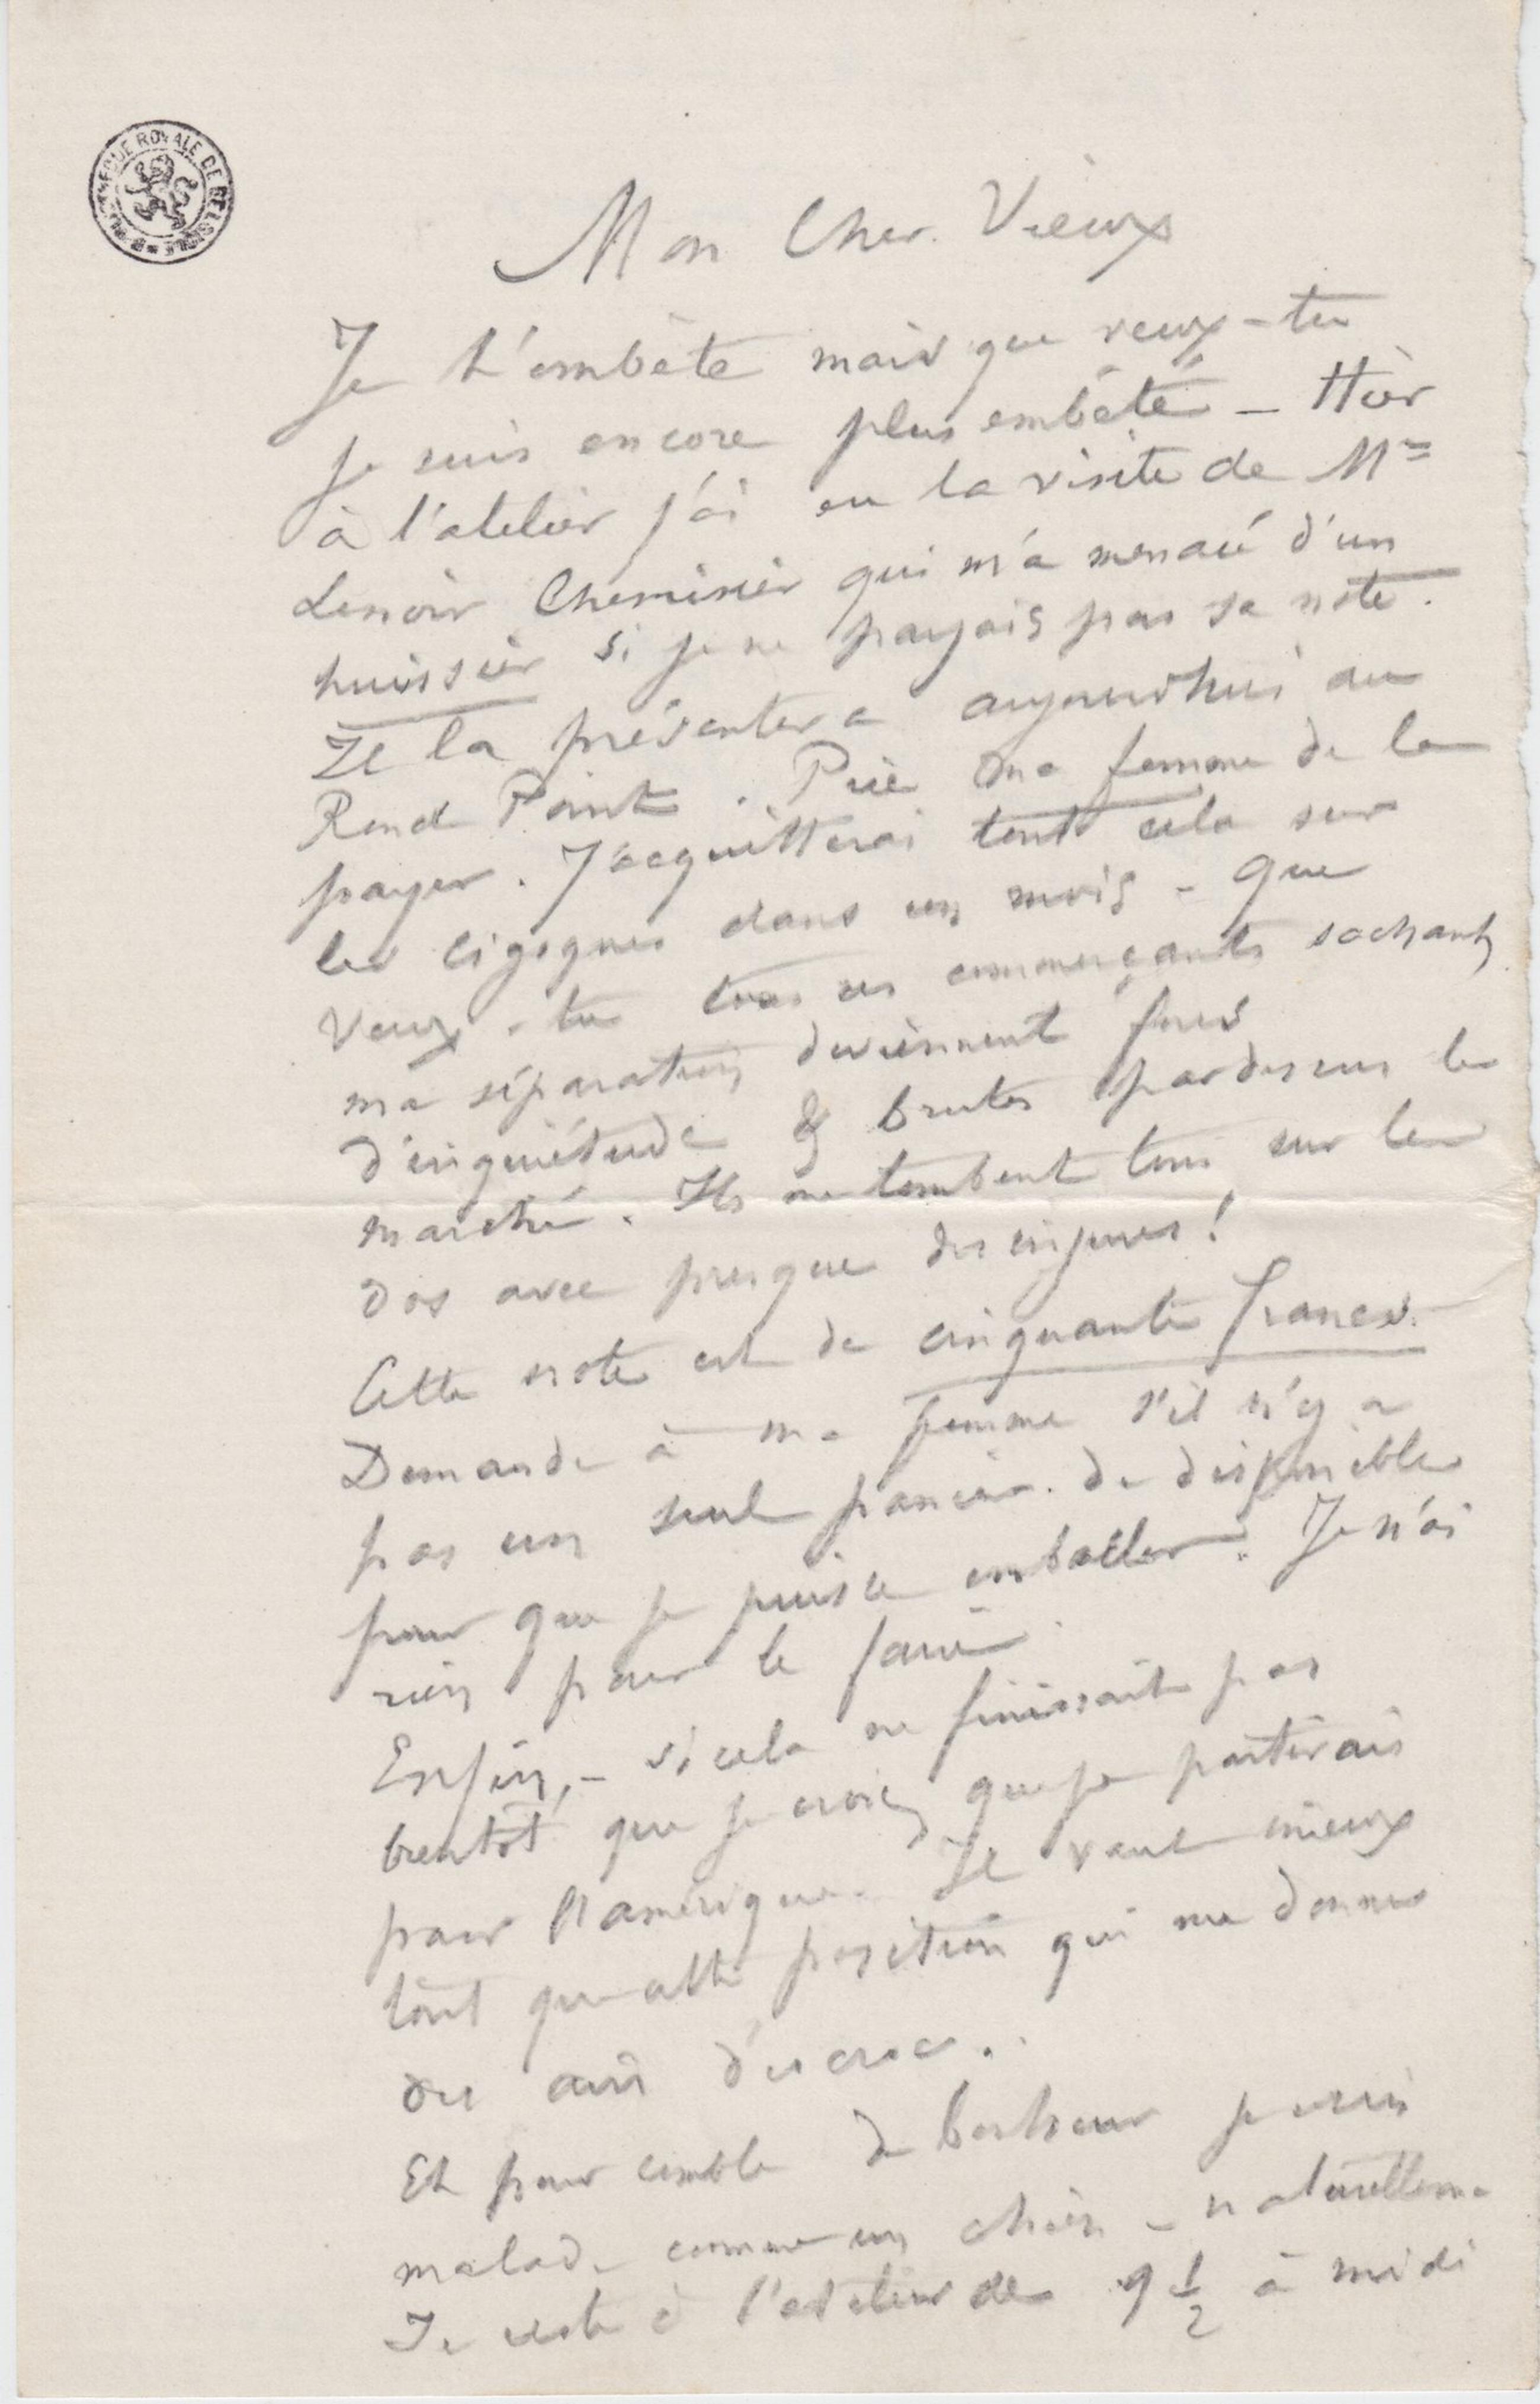 BIBLIOTHEQUE ROYALE DE BELGIQUE
Mon Cher Vieux
Je t'embête mais que veux-tu
je suis encore plus embêté – Hier
à l'atelier j'ai eu la visite de Mr
Lenoir Chemisier qui m'a menacé d'un
huissier si je ne payais pas sa note.
Il la présentera aujourd'hui au
Rond Point. Prie ma femme de la
payer. J'acquitterai tout cela sur
les Cigognes dans un mois – Que
Veux-tu tous ces commerçants sachant
ma séparation deviennent fous
d'inquiétude & brutes pardessus le
marché. Ils me tombent tous sur le
dos avec presque des injures!
Cette note est de cinquante francs.
Demande à ma femme s'il n'y a
pas un seul panier de disponible
pour que je puisse emballer. Je n'ai
rien pour le faire.
Enfin, – si cela ne finissait pas
bientôt que je crois que je partirais
pour l'amérique. Il vaut mieux
tout que cette position qui me donne
des airs d'escroc.
Et pour comble de bonheur je suis
malade comme un chien – naturellem
Je reste à l'atelier de 9 1/2 à midi